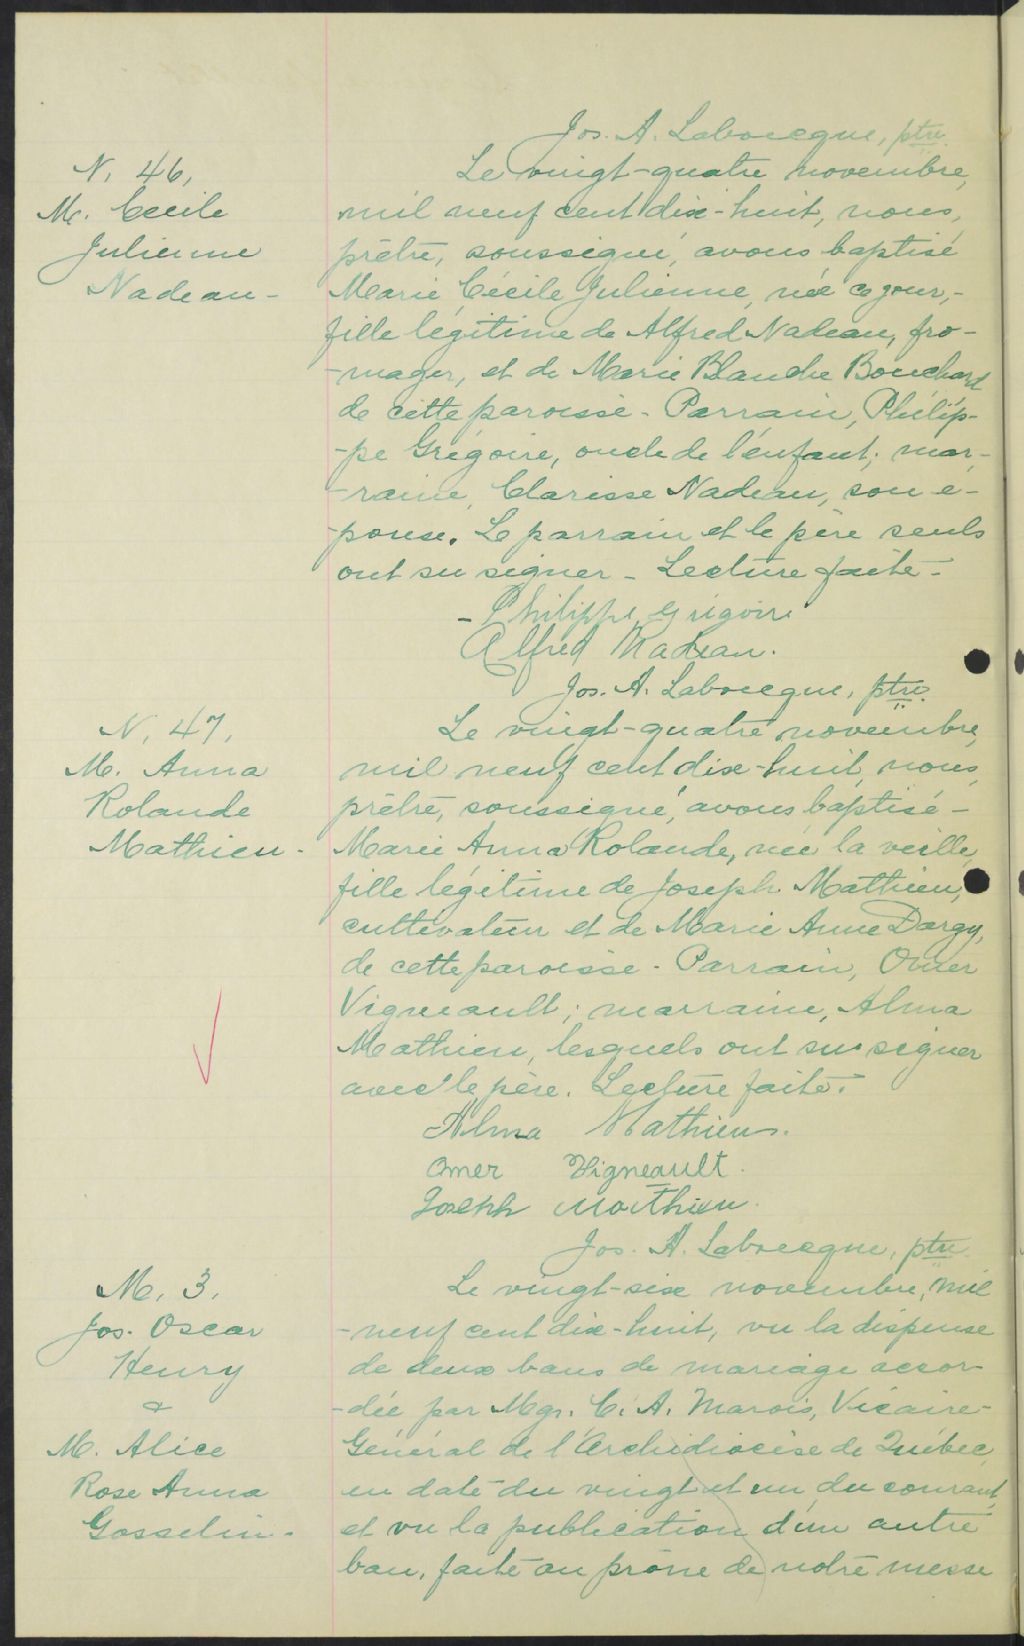 Jos. A. Labrecque, ptre.
N. 46,
M. Cecile
Julienne
Nadeau -
Le vingt-quatre novembre,
mil neuf cent dix-huit, nous,
prêtre, soussigné, avons baptisé
Marie Cécile Julienne, née ce jour,-
fille légitime de Alfred Nadeau, fro-
-mager, et de Marie Blanche Bouchard
de cette paroisse - Parrain, Philip-
-pe Grégoire, oncle de l'enfant; mar-
-raine, Clarisse Nadeau, son é-
-pouse. Le parrain et le père seuls
ont su signer - Lecture faite -
- Philippe Grégoire
Alfred Nadeau.
Jos. A. Labrecque, ptre.
N. 47,
M. Anna
Rolande
Mathieu -
Le vingt-quatre novembre,
mil neuf cent dix-huit, nous,
prêtre, soussigné, avons baptisé -
Marie Anna Rolande, née la veille,
fille légitime de Joseph Mathieu,
cultivateur et de Marie Anne Dargy,
de cette paroisse - Parrain, Omer
Vigneault; marraine, Alma
Mathieu, lesquels ont su signer
avec le père. Lecture faite.
Alma Mathieu.
Omer Vigneault.
Joseph Mathieu.
Jos. A. Labrecque, ptre.
M. 3.
Jos. Oscar
Henry
&
M. Alice
Rose Anna
Gosselin -
Le vingt-six novembre, mil
-neuf cent dix-huit, vu la dispense
de deux bans de mariage accor-
-dée par Mgr. C. A. Marois, Vicaire-
Général de l'Archidiocèse de Québec,
en date du vingt et un du courant,
et vu la publication d'un autre
ban, faite au prône de notre messe